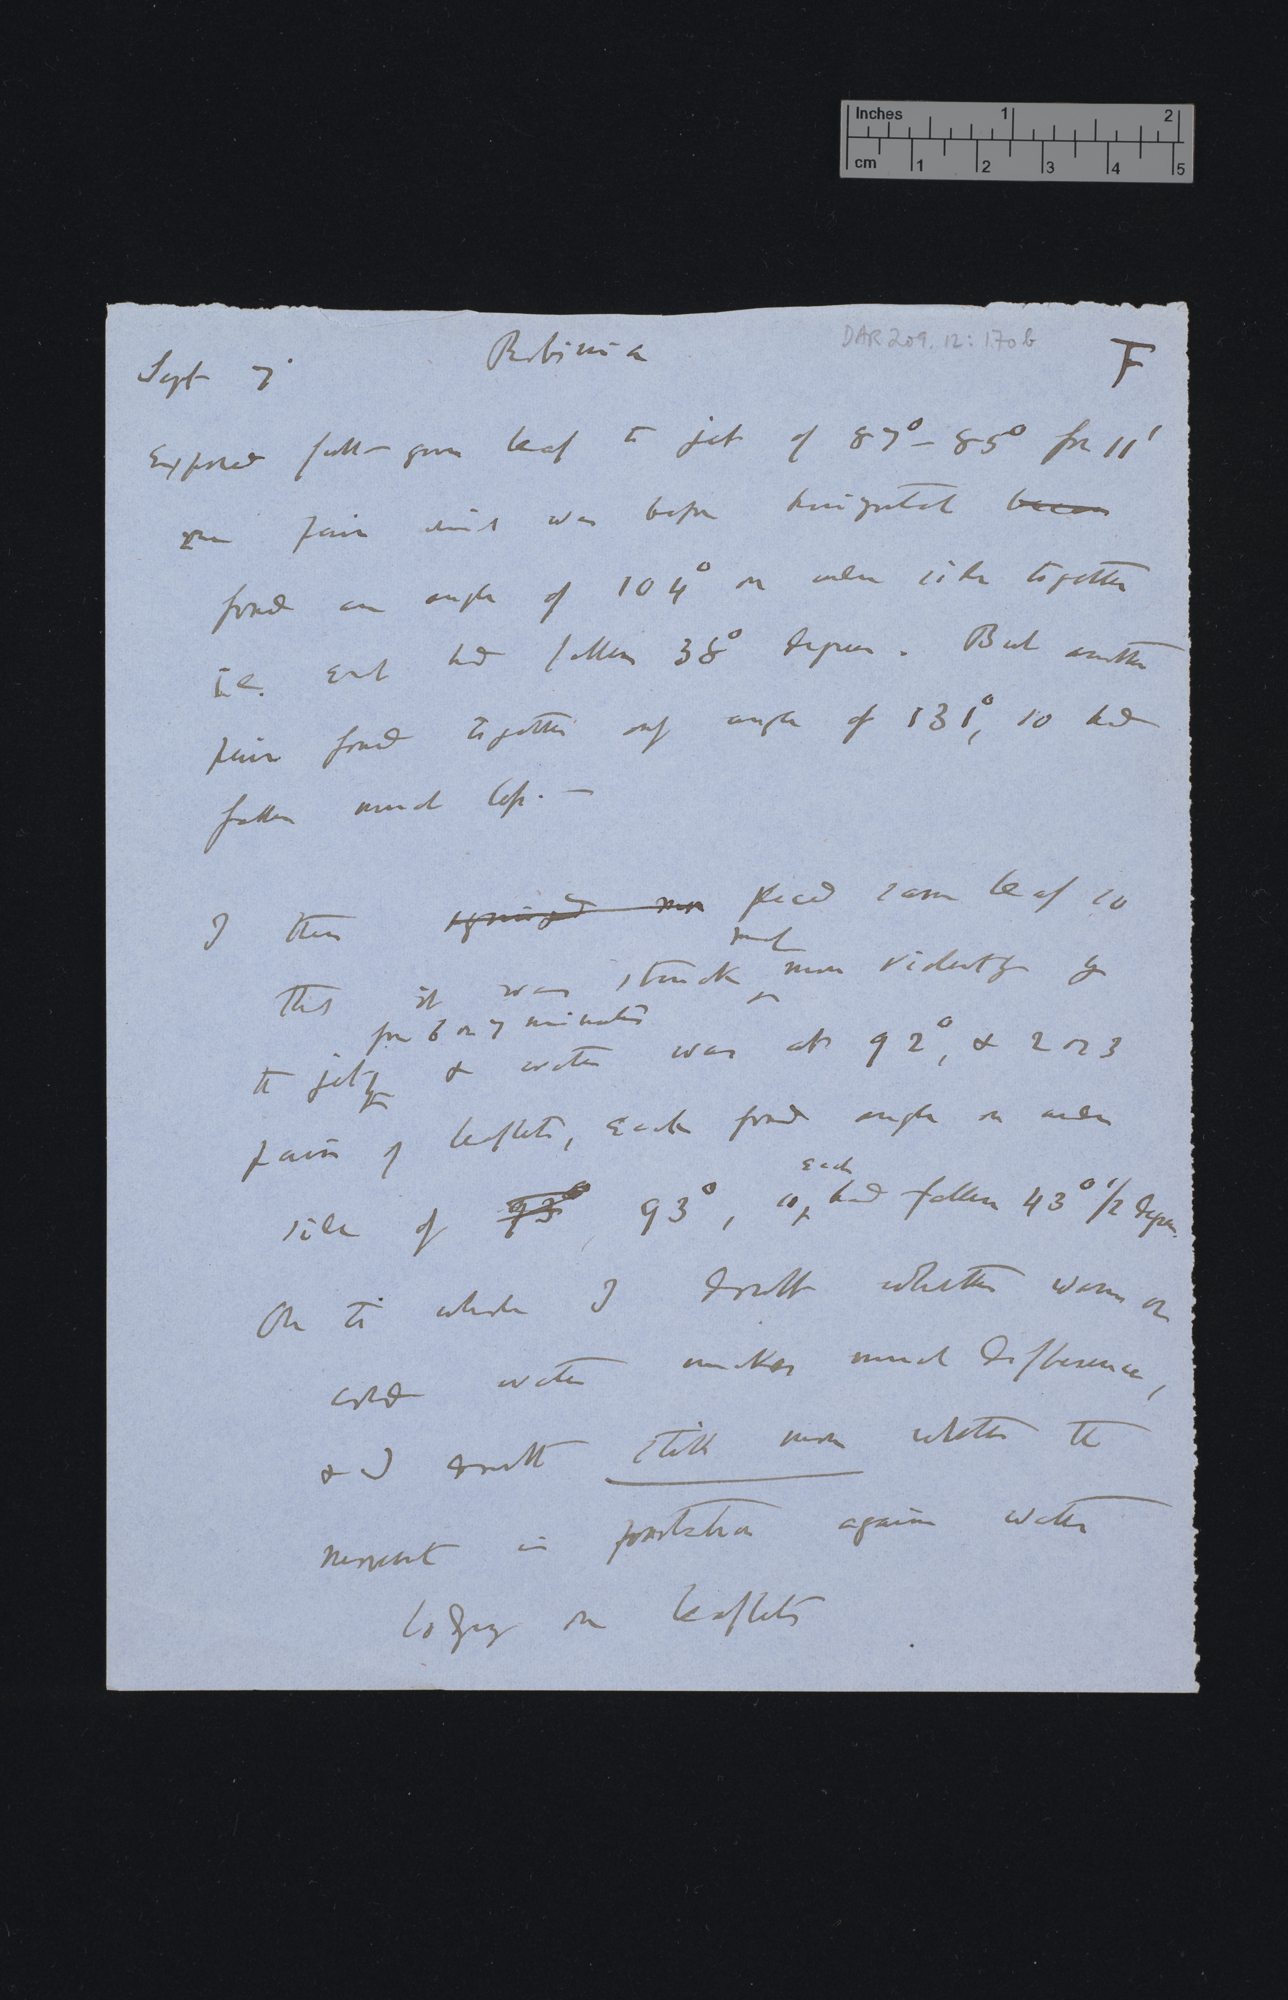 Inches 1 2
cm 1 2 3 4 5
DAR 209.12: 170b
Sept 7 Robinia F
Exposed full-grown leaf to jet of 87°–85° for 11'
one pair which was before horizontal
formed an angle of 104° on under side together
i.e. each had fallen 38° degrees. But another
pair formed together only angle of 131°, so had
fallen much less. —
I then syringed more placed same leaf so
much
that it was struck more violently by
for 6 or 7 minutes
the jet & water was at 92°, & 2 or 3
pairs of leaflets, each formed angle on under
each
side of 93° 93°, so had fallen 43° 1/2 degrees.
On the whole I doubt whether warm or
cold water makes much difference,
& I doubt still more whether the
movement is protection against water
lodging on leaflets